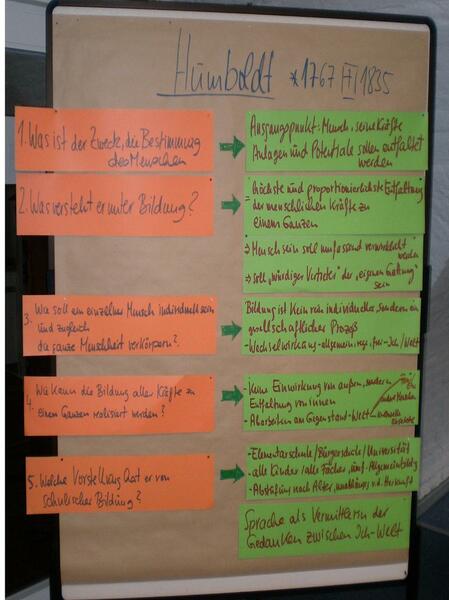 Humboldt *1767 †1835
1. Was ist der Zweck, die Bestimmung
des Menschen
Ausgangspunkt: Mensch, seine Kräfte
Anlagen und Potentiale sollen entfaltet
werden
2. Was versteht er unter Bildung?
= höchste und proportionierlichste Entfaltung
der menschlichen Kräfte zu
einem Ganzen
→ Mensch sein soll umfassend verwirklicht
werden
→ soll „würdiger Vertreter" der „eigenen Gattung"
sein
3. Wie soll ein einzelner Mensch individuell sein
und zugleich
die ganze Menschheit verkörpern?
Bildung ist kein rein individueller, sondern ein
gesellschaftlicher Prozeß
- Wechselwirkung - allgemein, rege, frei - Ich/Welt
4. Wie kann die Bildung aller Kräfte zu
einem Ganzen realisiert werden?
- keine Einwirkung von außen, sondern
Entfaltung von innen
- Abarbeiten am Gegenstand - Welt
5. Welche Vorstellung hat er von
schulischer Bildung?
- Elementarschule / Bürgerschule / Universität
- alle Kinder / alle Fächer, Allgemeinbildg
- Abstufung nach Alter, unabhängig v. d. Herkunft
Sprache als Vermittlerin der
Gedanken zwischen Ich - Welt